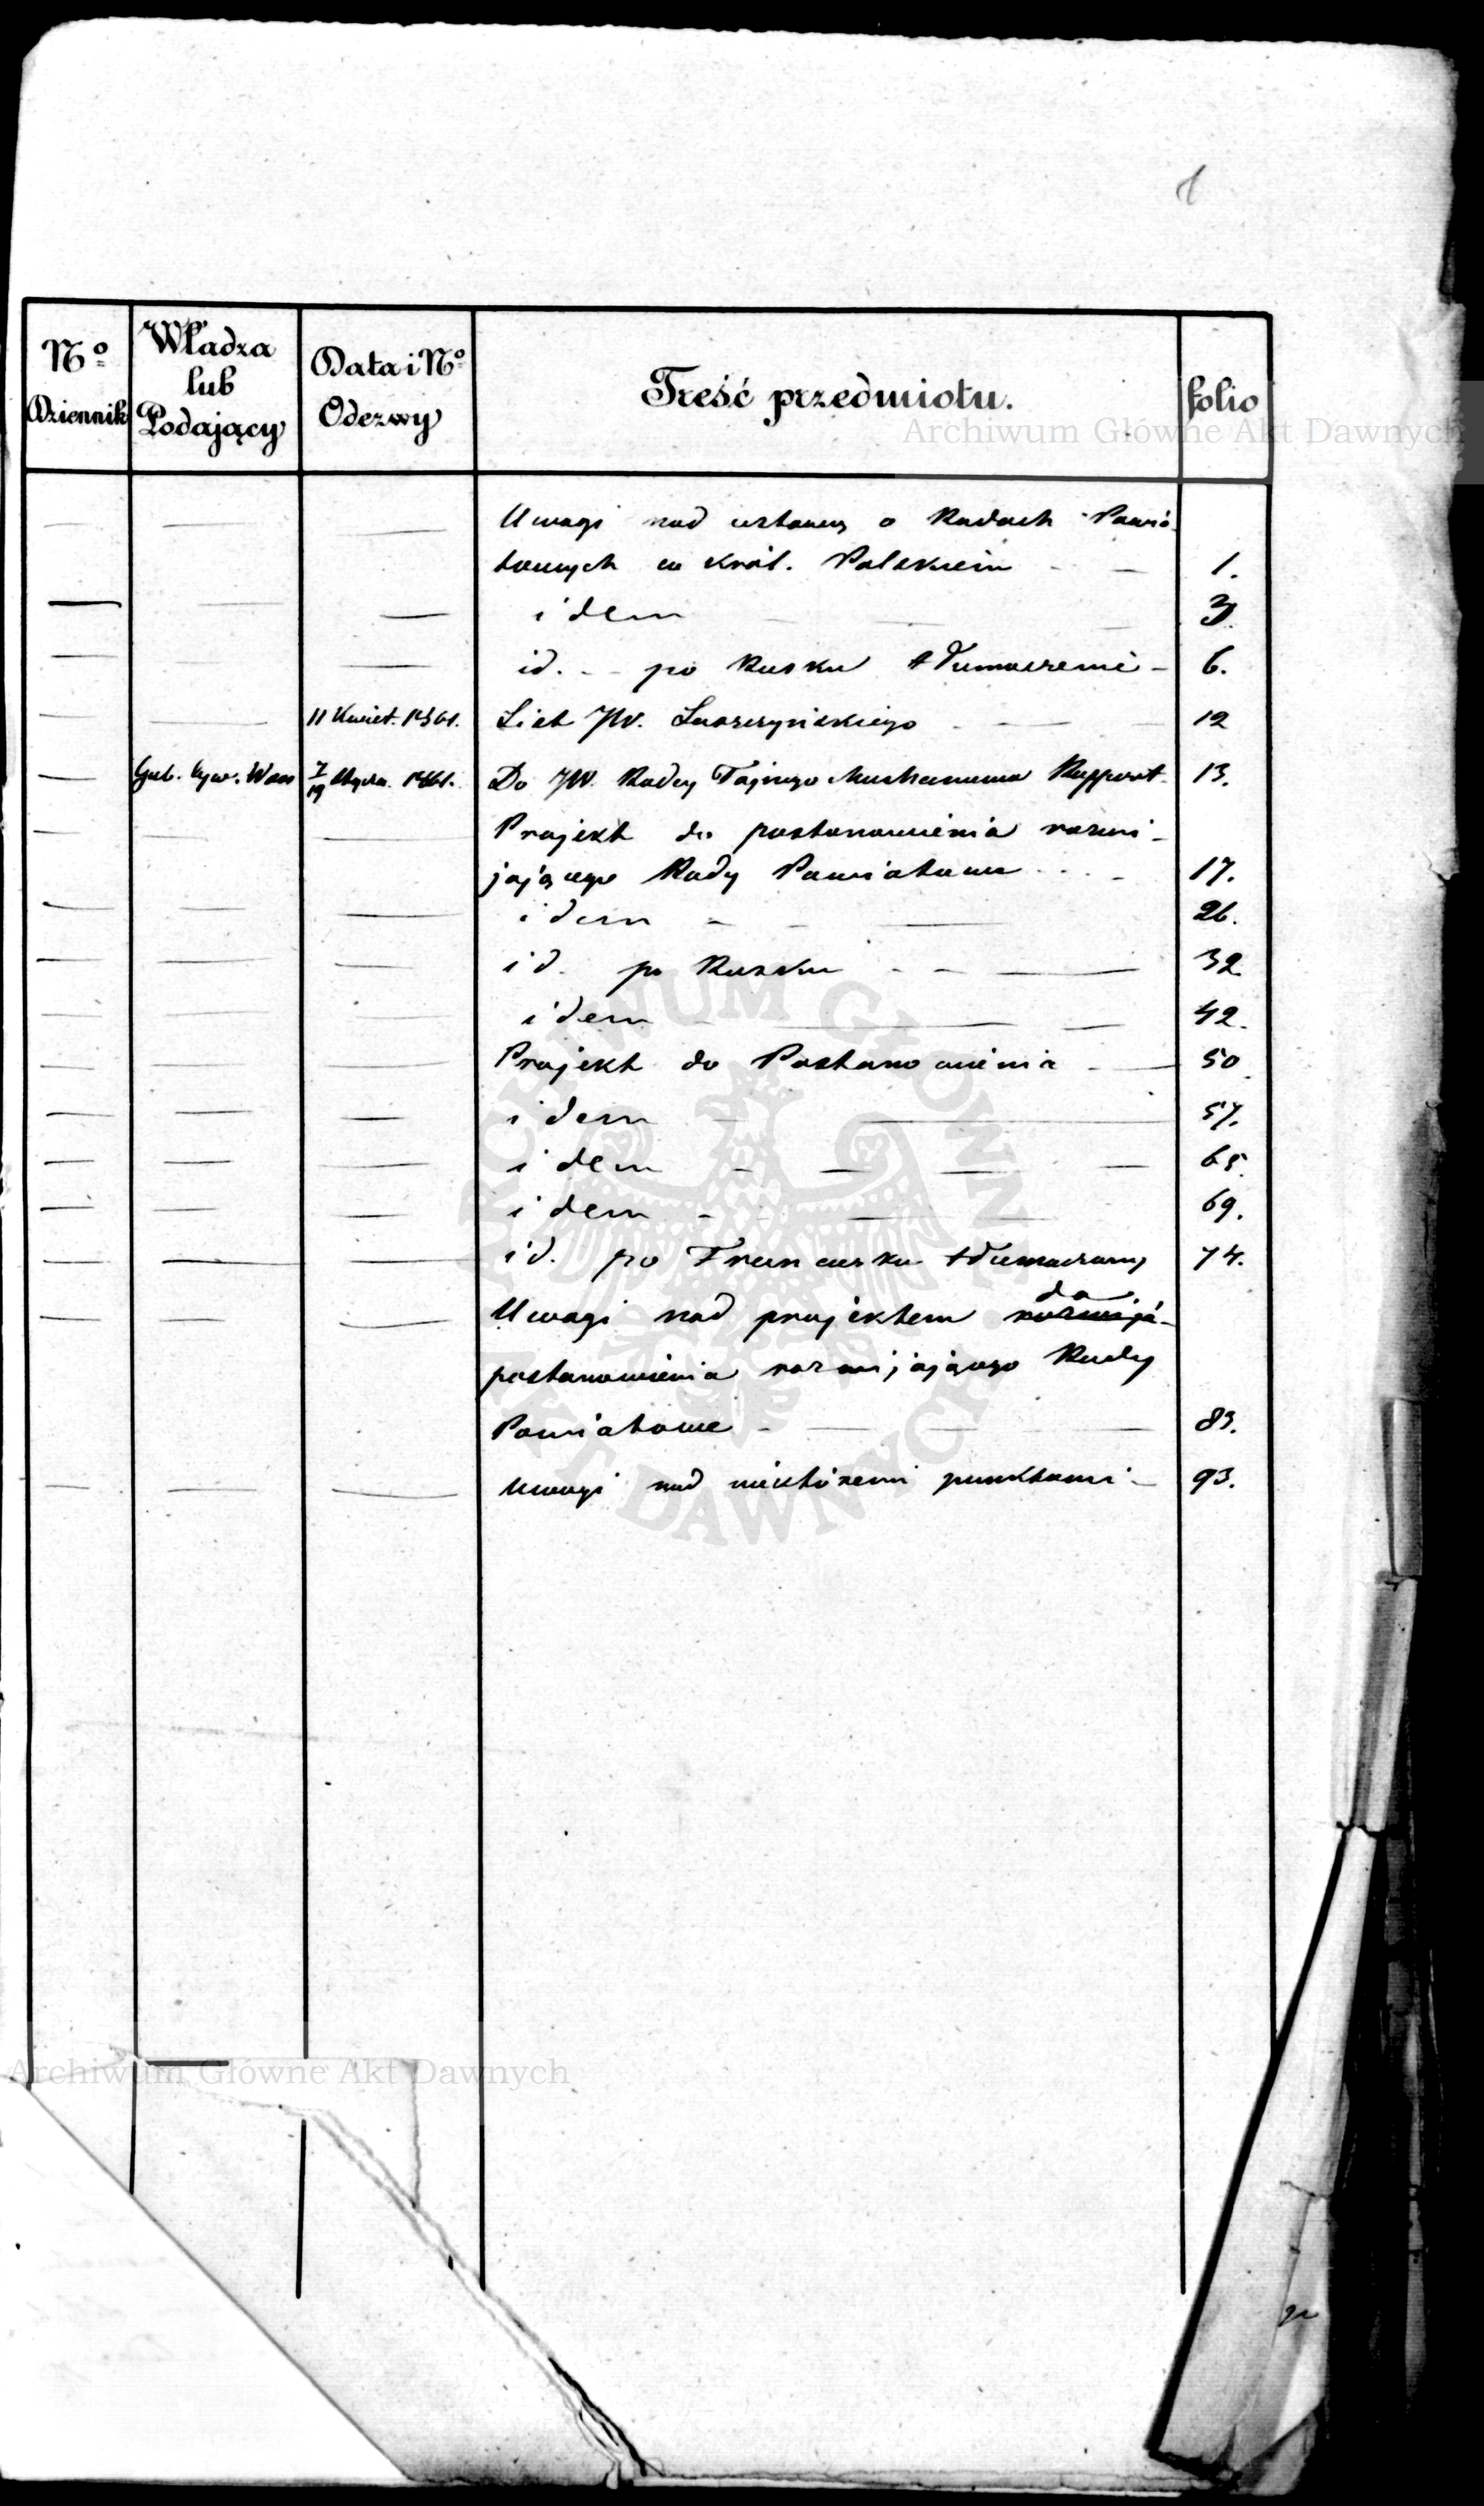 1
Nº Dziennik
Władza lub Podający
Data i Nº Odezwy
Treść przedmiotu.
folio
Archiwum Główne Akt Dawnych
Uwagi nad ustawą o Radach Powia-
towych w Król. Polskiem 1.
idem 3.
id. po Rusku tłumaczenie 6.
11 Kwiet. 1861. List JW. Łaszczyńskiego 12
Gub. Cyw. Wars 7/19 Stycz. 1861. Do JW. Radcy Tajnego Muchanowa Rapport 13.
Projekt do postanowienia rozwi-
jającego Rady Powiatowe 17.
idem 26.
id. po Rusku 32
idem 42.
Projekt do Postanowienia 50
idem 57.
idem 65.
idem 69.
id. po Francusku tłumaczony 74.
do
Uwagi nad projektem rozwija-
postanowienia rozwijającego Rady
Powiatowe 83.
Uwagi nad niektóremi punktami 93.
ARCHIWUM GŁÓWNE AKT DAWNYCH
Archiwum Główne Akt Dawnych